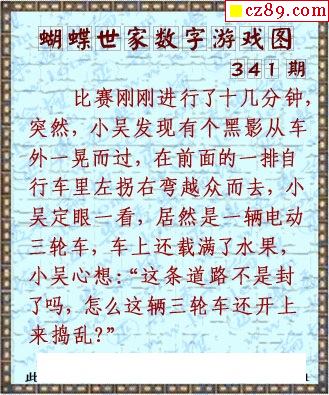 cz89.com
蝴蝶世家数字游戏图
341期
比赛刚刚进行了十几分钟，
突然，小吴发现有个黑影从车
外一晃而过，在前面的一排自
行车里左拐右弯越众而去，小
吴定眼一看，居然是一辆电动
三轮车，车上还载满了水果，
小吴心想：“这条道路不是封
了吗，怎么这辆三轮车还开上
来捣乱？”
此